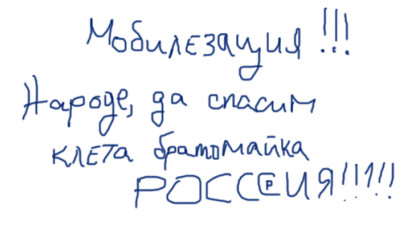 Мобилезация!!!
Народе, да спасим
клета братомайка
РОССЕИЯ!!1!!